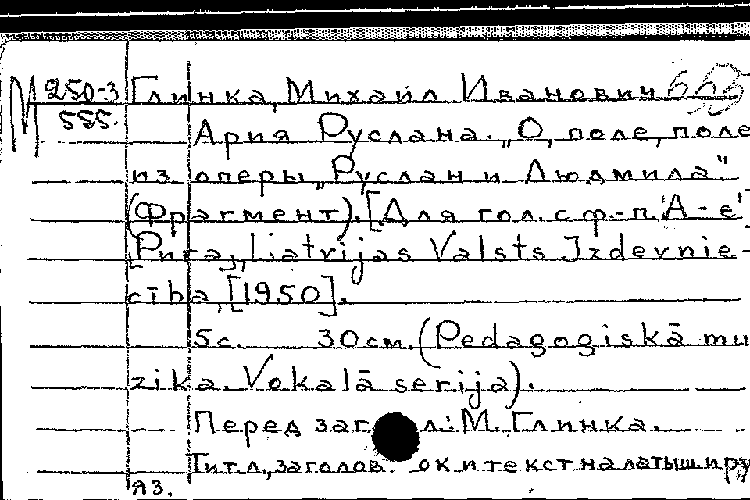 М 250-3 Глинка, Михаил Иванович
555. Ария Руслана. „О, поле, поле
из оперы „Руслан и Людмила"
(Фрагмент). [Для гол. с ф-п. А-е
[Рига], Latvijas Valsts Izdevnie-
cība, [1950].
5 с. 30 см. (Pedagoģiskā mu
zika. Vokalā serija).
Перед заг л.: М. Глинка.
Титл., заголов. ок и текст на латыш. и ру